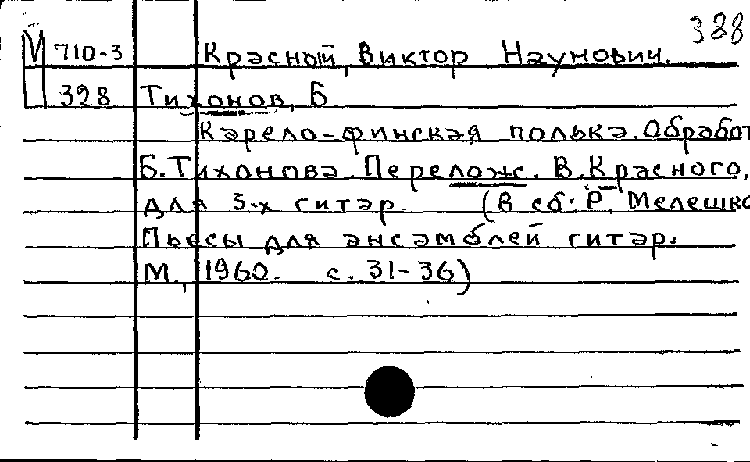 388
М 710-3 Красный, Виктор Наумович.
328 Тихонов, Б
Карело-финская полька. Обработ
Б. Тихонова. Перелож. В. Красного,
для 3-х гитар (В сб: Р. Мелешко
Пьесы для ансамблей гитар.
М., 1960. с. 31-36)